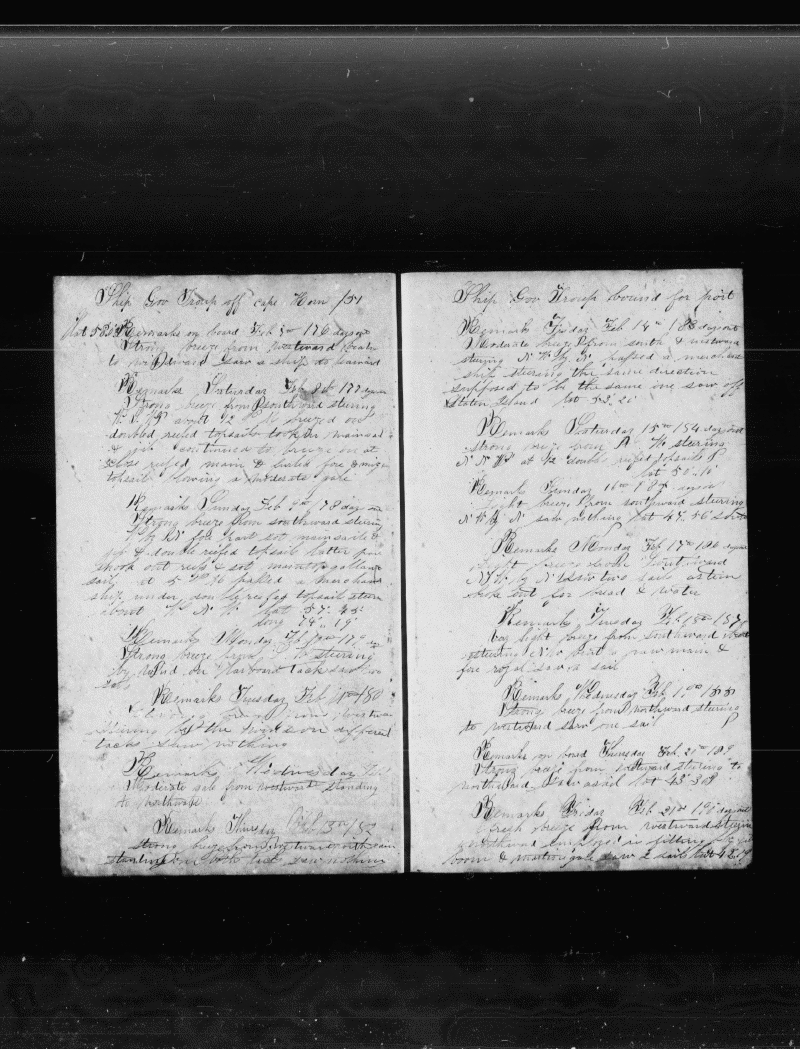 Ship Gov Troup off cape Horn /51
Lat 58 Remarks on board Feb 7th 176 days out
Strong breeze from westward
to windward saw a ship to leeward
Remarks Saturday Feb 8th 177 days
Strong breeze from southward steering
at 12 breezed on
doubled reefed topsails
& jib continued to breeze on at
close reefed main & furled fore & mizen
topsail blowing a moderate gale
Remarks Sunday Feb 9th 78 days out
Strong breeze from southward steering
fore part set mainsail &
jib & double reefed topsail latter part
shook out reefs & set main top gallant
sail at 5 passed a merchant
ship under double reefed topsail stern
about W N W Lat 57 " 45
Long 74 " 19
Remarks Monday Feb 10th 179
Strong breeze from W steering
by wind on larboard tack saw two
sail
Remarks Tuesday Feb 11th 180
from westward
steering by the wind on different
tacks saw nothing
Remarks Wednesday
Moderate gale from westward standing
to northward
Remarks Thursday Feb 13th 182
strong breeze from westward with rain
standing on both tacks saw nothing
Ship Gov Troup bound for port
Remarks Friday Feb 14th 183 days out
Moderate breeze from south & westward
steering N W by N passed a merchant
ship steering the same direction
supposed to be the same one saw off
Staten Island Lat 53 " 21
Remarks Saturday 15th 184 days out
strong breeze from W steering
N N W at 12 double reefed topsails
Lat 50 " 10
Remarks Sunday 16th 185 days out
light breeze from southward steering
N W by N saw nothing Lat 47 " 56 South
Remarks Monday Feb 17th 186 days out
light breeze from southward
N W by N saw two sails astern
broke out for bread & water
Remarks Tuesday Feb 18th 187
light breeze from southward
steering N by main &
fore royal saw a sail
Remarks Wednesday Feb 19th 188
Strong breeze from northward steering
to westward saw one sail
Remarks on board Thursday Feb 20th 189
Strong breeze from westward steering to
northward saw a sail Lat 43 " 30 S
Remarks Friday Feb 21st 190 days out
Fresh breeze from westward steering
northward employed in fitting jib
boom & martingale saw 2 sails Lat 42